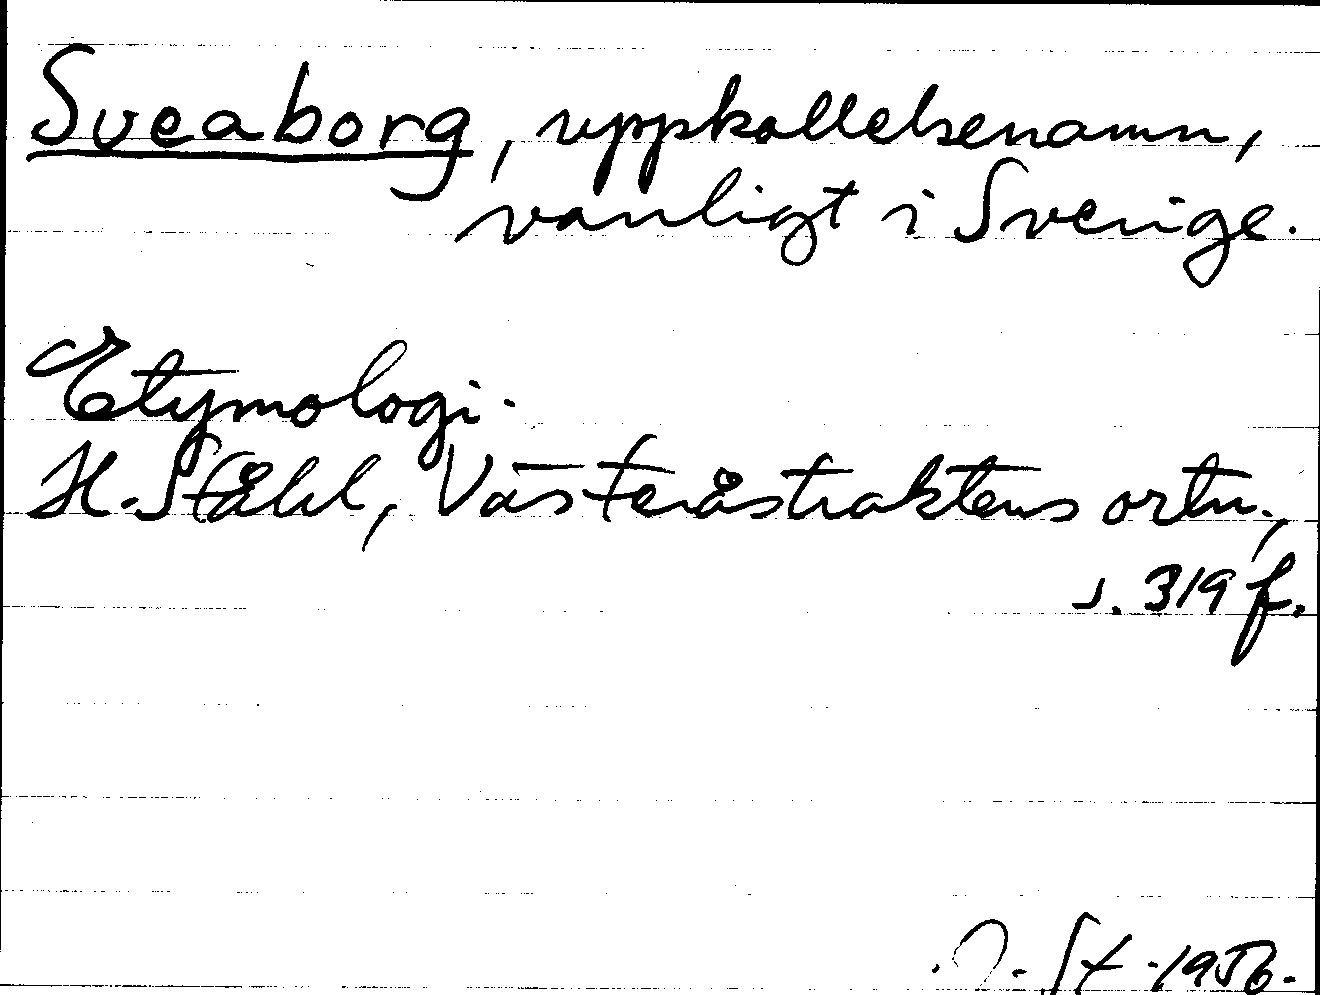 Sveaborg, uppkallelsenamn,
vanligt i Sverige.
Etymologi.
H. Ståhl, Västeråstraktens ortn.,
s. 319 f.
St. 1956.